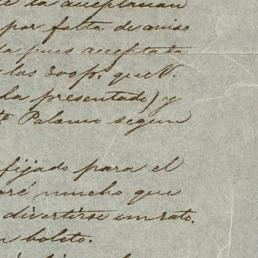 e la aceptaban
por falta de aviso
la pues aceptada
e las 300 p.s que V.
ha presentado) y
Palamo segun
fijado para el
aré mucho que
divertirse un rato.
n boleto.